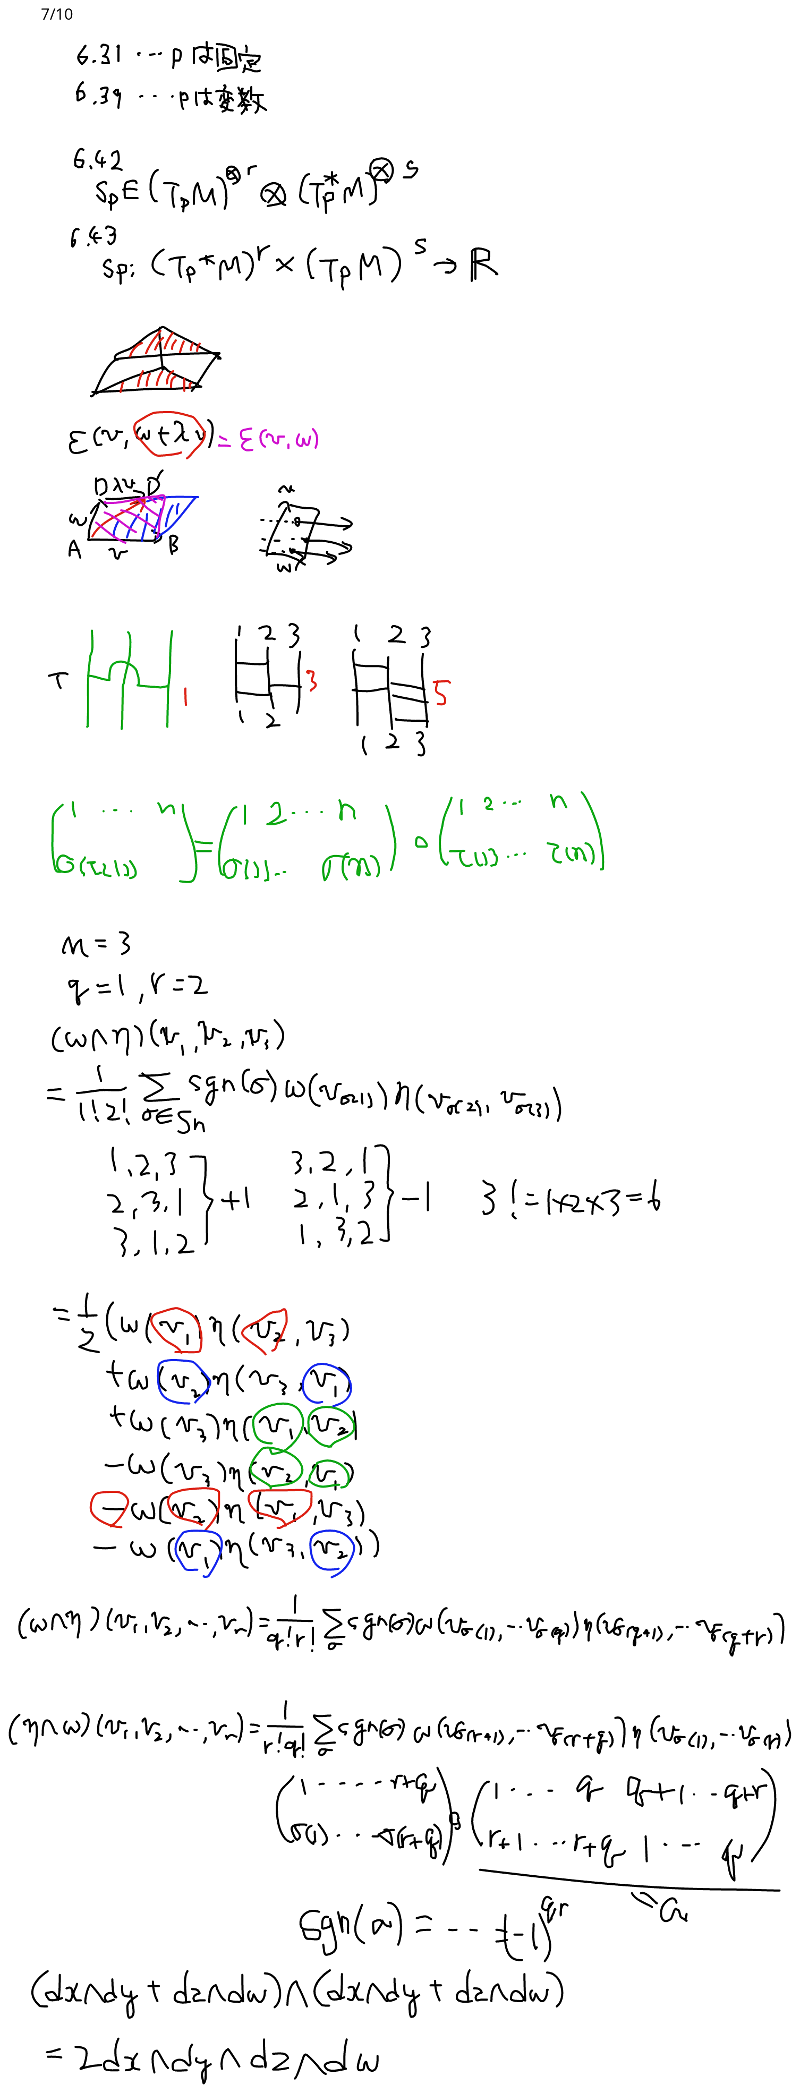 7/10
6.31 ... pは固定
6.39 ... pは変数
6.42
Sp∈(TpM)^⊗r ⊗ (Tp*M)^⊗s
6.43
Sp: (Tp*M)^r × (TpM)^s → ℝ
ε(v, w+λv) = ε(v, w)
D λv D'
w
A v B
v
w
τ 1
1 2 3
3
1 2
1 2 3
5
1 2 3
(1 ... n / σ(τ(1)) ) = (1 2 ... n / σ(1) ... σ(n)) ∘ (1 2 ... n / τ(1) ... τ(n))
n = 3
q = 1, r = 2
(ω∧η)(v₁, v₂, v₃)
= 1/1!2! Σ_{σ∈Sn} sgn(σ) ω(v_σ(1)) η(v_σ(2), v_σ(3))
1, 2, 3 3, 2, 1
2, 3, 1 } +1 2, 1, 3 } −1 3! = 1×2×3 = 6
3, 1, 2 1, 3, 2
= 1/2 (ω(v₁)η(v₂, v₃)
+ω(v₂)η(v₃, v₁)
+ω(v₃)η(v₁, v₂)
−ω(v₃)η(v₂, v₁)
−ω(v₂)η(v₁, v₃)
−ω(v₁)η(v₃, v₂))
(ω∧η)(v₁, v₂, ..., vₙ) = 1/q!r! Σ_σ sgn(σ) ω(v_σ(1), ... v_σ(q)) η(v_σ(q+1), ... v_σ(q+r))
(η∧ω)(v₁, v₂, ..., vₙ) = 1/r!q! Σ_σ sgn(σ) ω(v_σ(r+1), ... v_σ(r+q)) η(v_σ(1), ... v_σ(r))
(1 ..... r+q / σ(1) ... σ(r+q)) ∘ (1 ... q q+1 ... q+r / r+1 ... r+q 1 ... q)
= a
sgn(a) = ... = (−1)^qr
(dx∧dy + dz∧dw)∧(dx∧dy + dz∧dw)
= 2dx∧dy∧dz∧dw